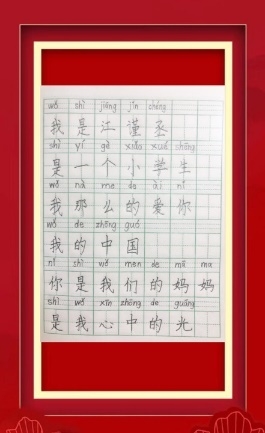 wǒ shì jiāng jǐn chéng
我是江谨丞
shì yí gè xiǎo xué shēng
是一个小学生
wǒ nà me de ài nǐ
我那么的爱你
wǒ de zhōng guó
我的中国
nǐ shì wǒ men de mā ma
你是我们的妈妈
shì wǒ xīn zhōng de guāng
是我心中的光